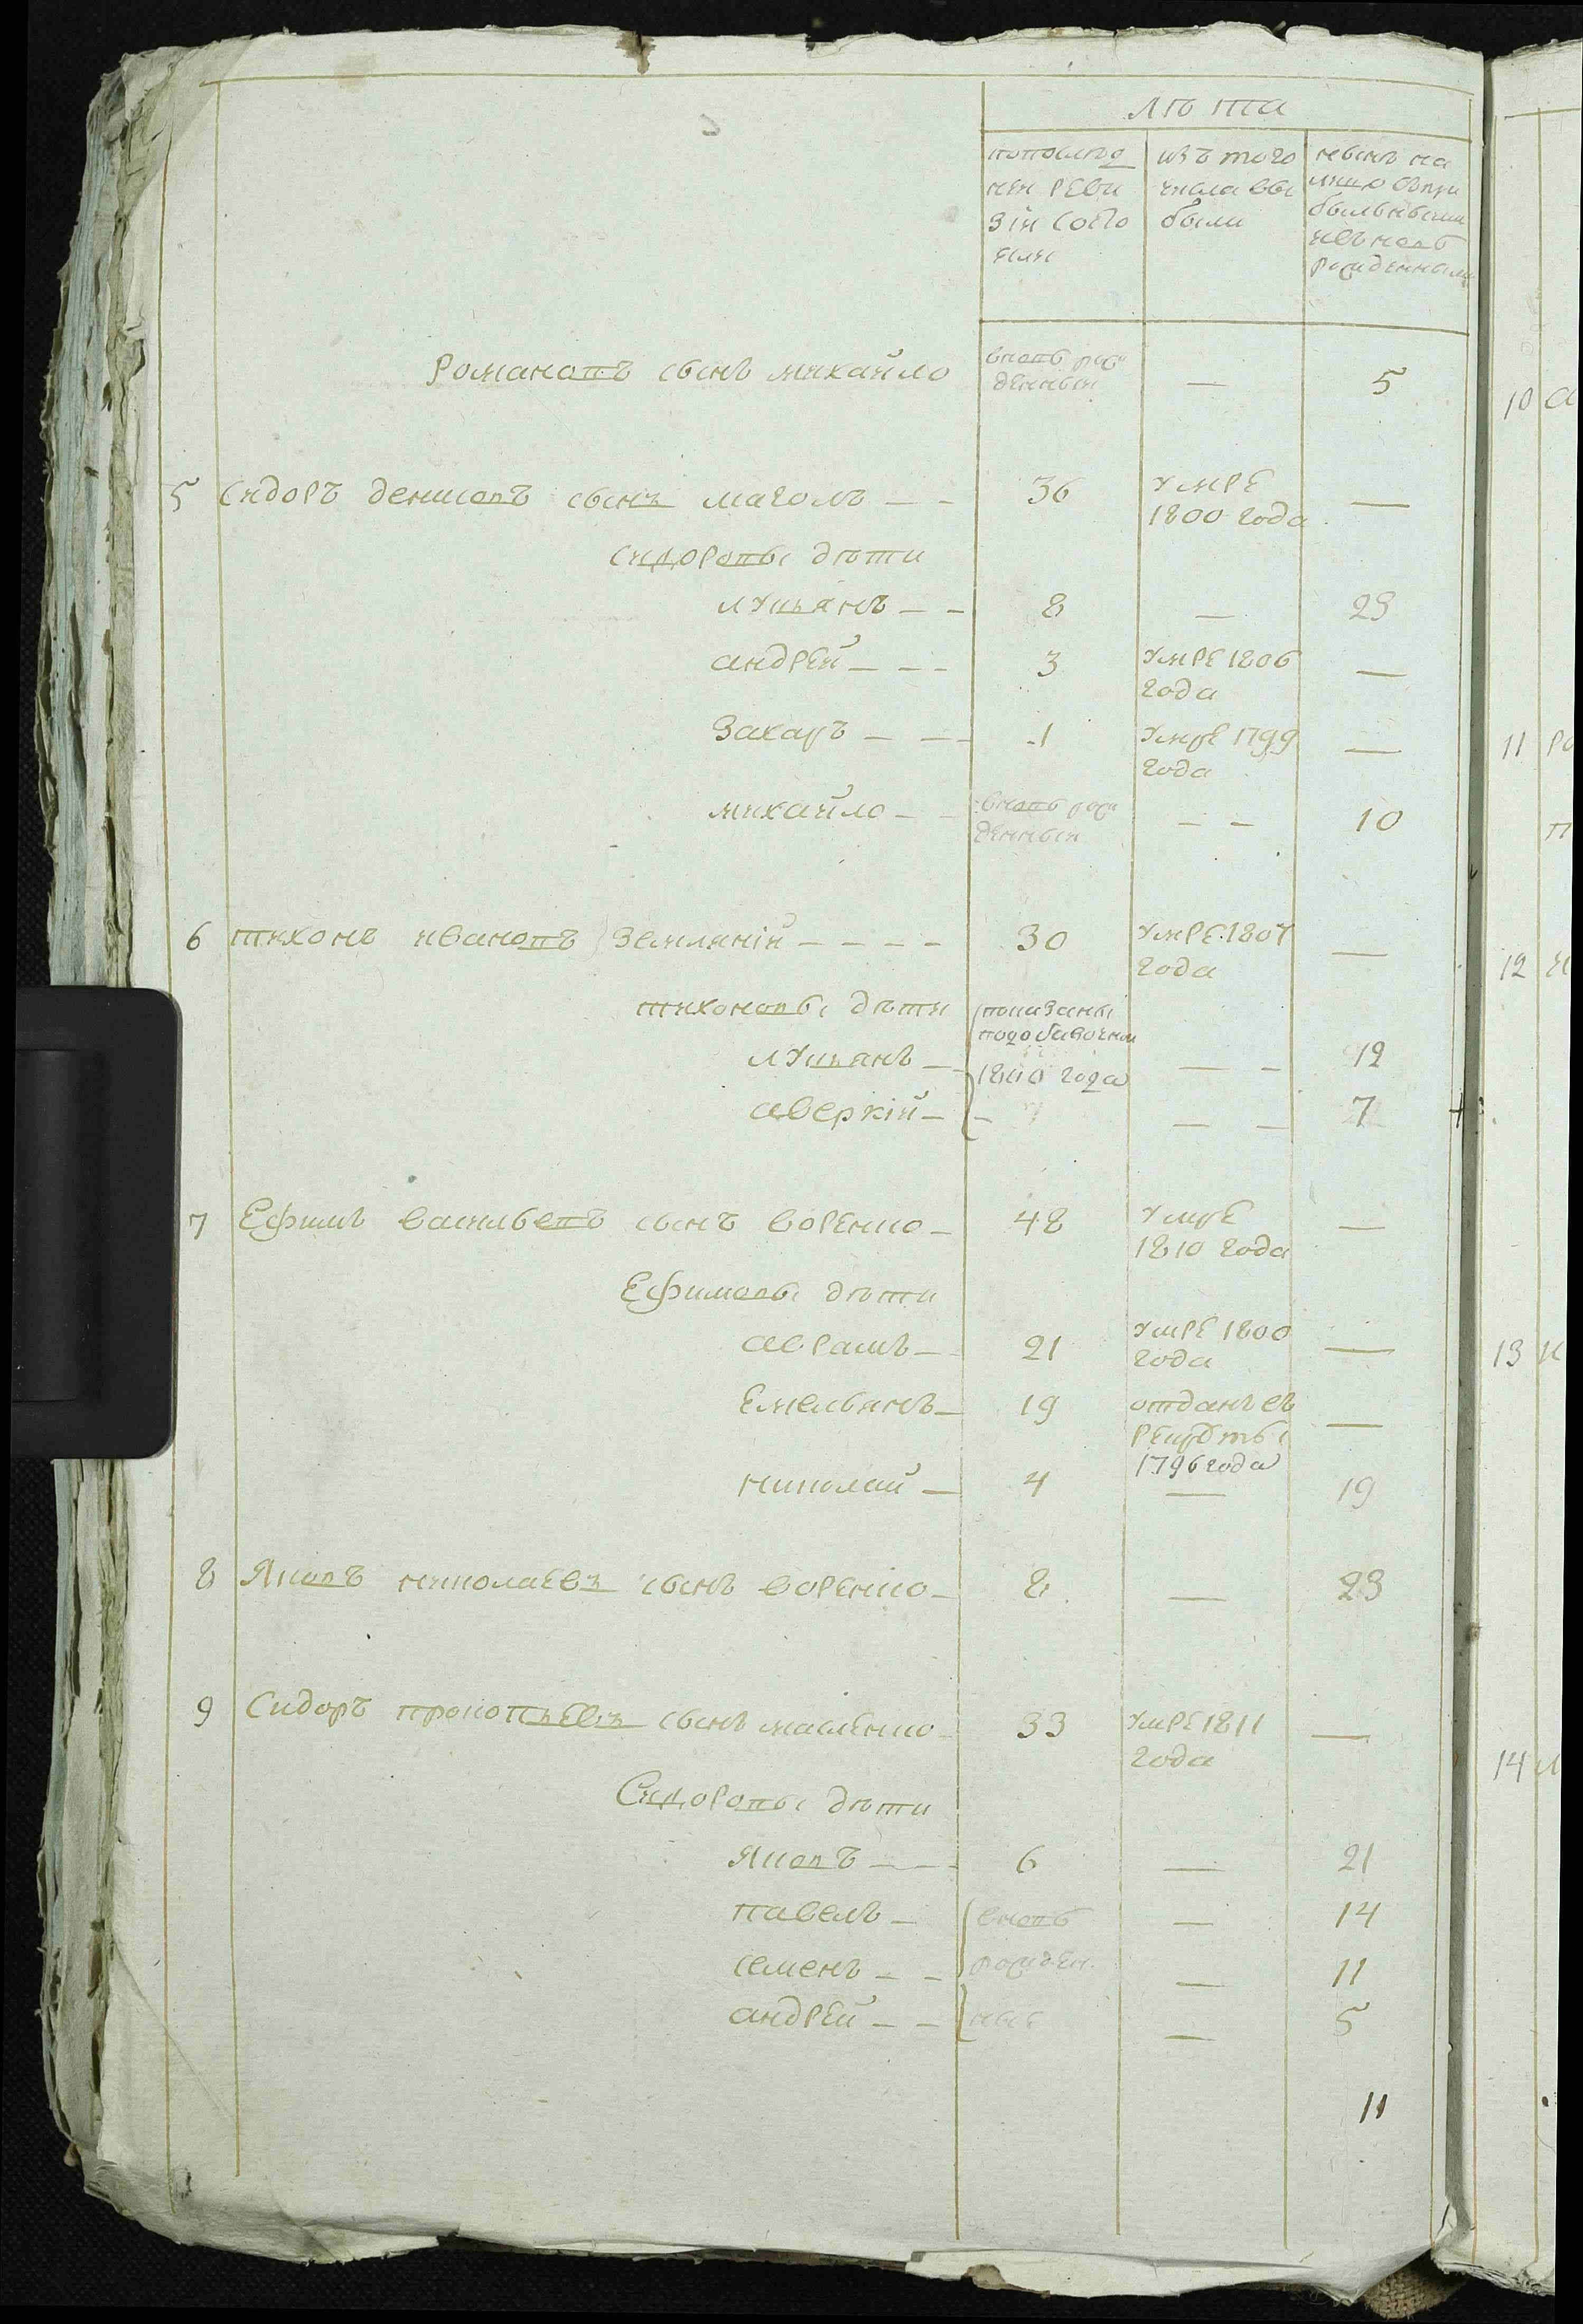 лѣта
попослѣд
ней реви
зіи состо
яли
изъ того
числа вы
были
нынѣ на
лицо съпри
былыми
рожденными
Романовъ сынъ михайло вновь рож 5
денный
5 Сидоръ денисовъ сынъ маголь — — 36 умре —
1800 года
сидоровы дѣти
лукьянъ — — 8 — 23
андрей — — — 3 умре 1806 —
года
Захаръ — — 1 умре 1799 —
года
михайло — вновь рож — — 10
денный
6 тихонъ ивановъ Землянiй — — — — 30 умре 1807 —
года
тихоновы дѣти показаны
подобавочной
лукьянъ — 1800 года — — 12
аверкiй — — — — 7
7 Ефимъ васильевъ сынъ воренко — 48 умре —
1810 года
Ефимовы дѣти
аврамъ — 21 умре 1800 —
года
Емельянъ — 19 отданъ въ —
рекруты
1796 года
николай — 4 — 19
8 Яковъ николаевъ сынъ воренко — 8 — 23
9 Сидоръ прокопьевъ сынъ масленко — 33 умре 1811 —
года
Сидоровы дѣти
яковъ — — 6 — 21
павелъ — вновь — 14
семенъ — — рожден — 11
андрей — — ные — 5
11
10
11
12
13
14